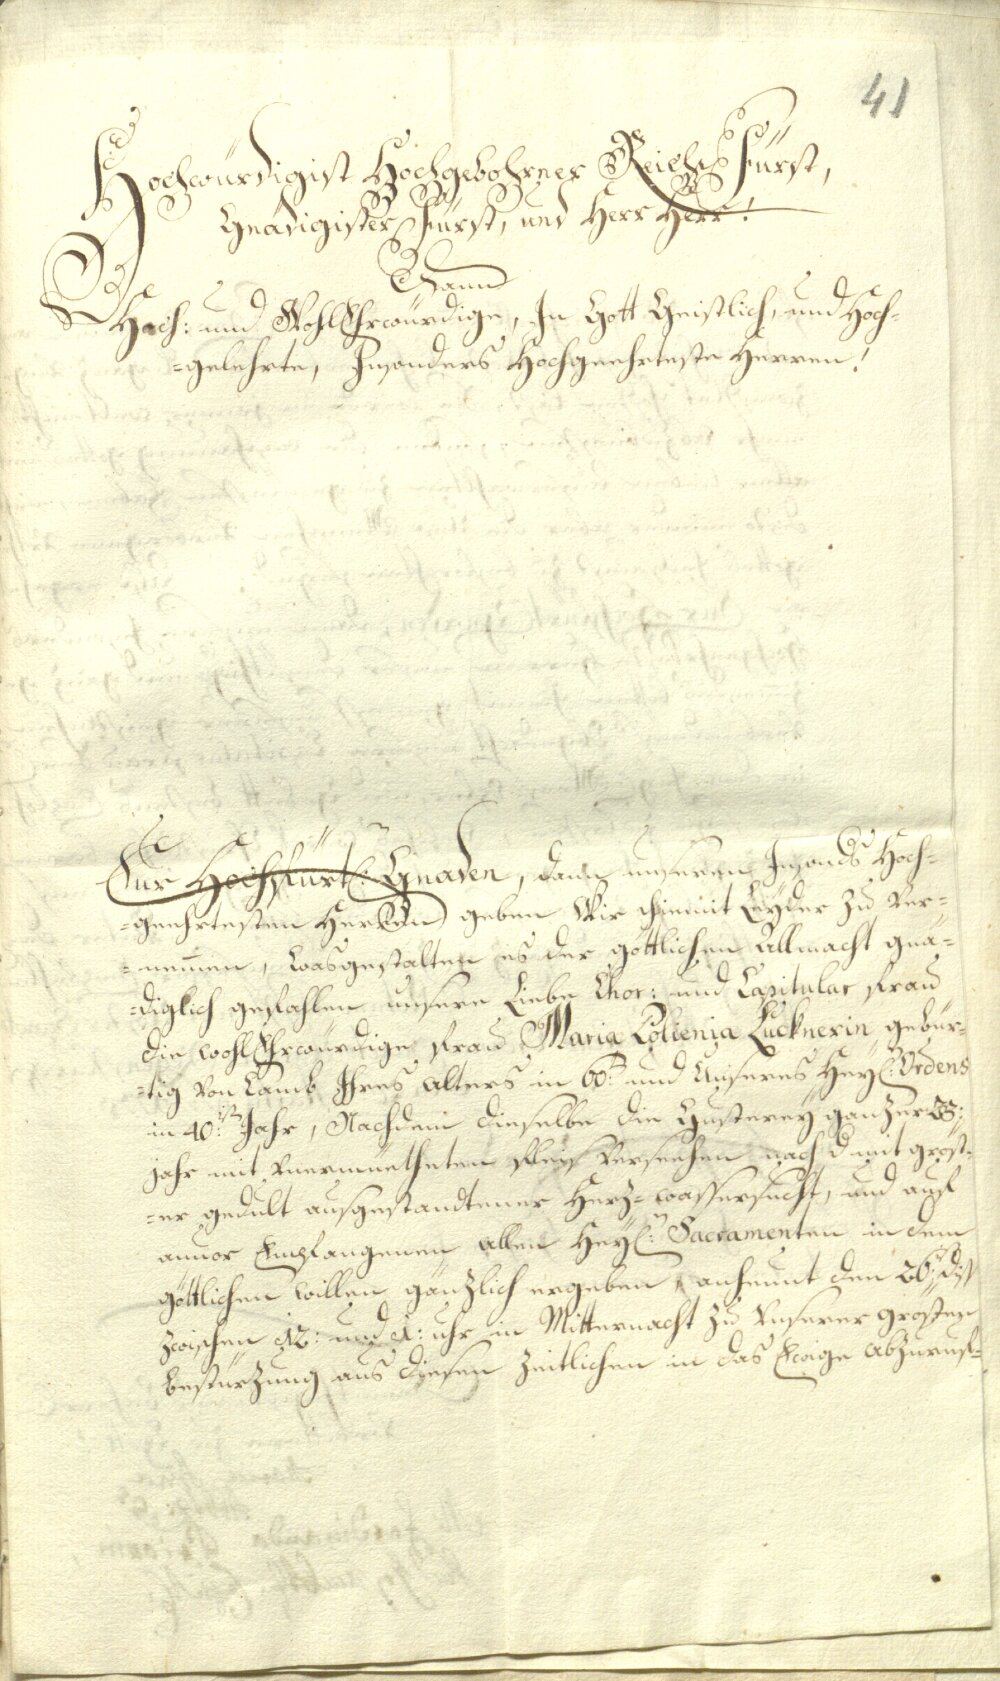 41
Hochwürdigist Hochgebohrner Reichs Fürst,
Gnädigister Fürst, und Herr Herr!
Dann
Hoch: und WohlEhrwürdige, In Gott Geistlich, und Hoch-
-gelehrte, Insonders Hochgeehrteste Herren!
Eur Hochfürtl: Gnaden, dann unseren Insonds Hoch-
-geehrtesten Herren geben Wir hiemit Leyder zu ver-
-nemmen, wasgestalten es der göttlichen Allmacht gnä-
-diglich gefahlen unsere Liebe Chor: und Capitular Frau
die wohlEhrwürdige Frau Maria Lucknerin gebür-
-tig von Camb Ihres Alters in 60: und Unseres Heyl: Ordens
in 40: Jahr, Nachdem dieselbe die Custerey ganzer 23:
jahr mit fleis versechen nach mit gröst-
-er gedult ausgestandtener Herz-wassersucht, und auf
anvor Empfangenen allen Heyl: Sacramenten in dem
göttlichen willen gänzlich ergeben, anheunt den 26: diß
zwischen 12: und 1: uhr in Mitternacht zu Unserer grösten
bestürzung aus diesen Zeitlichen in das Ewige abzuruef-